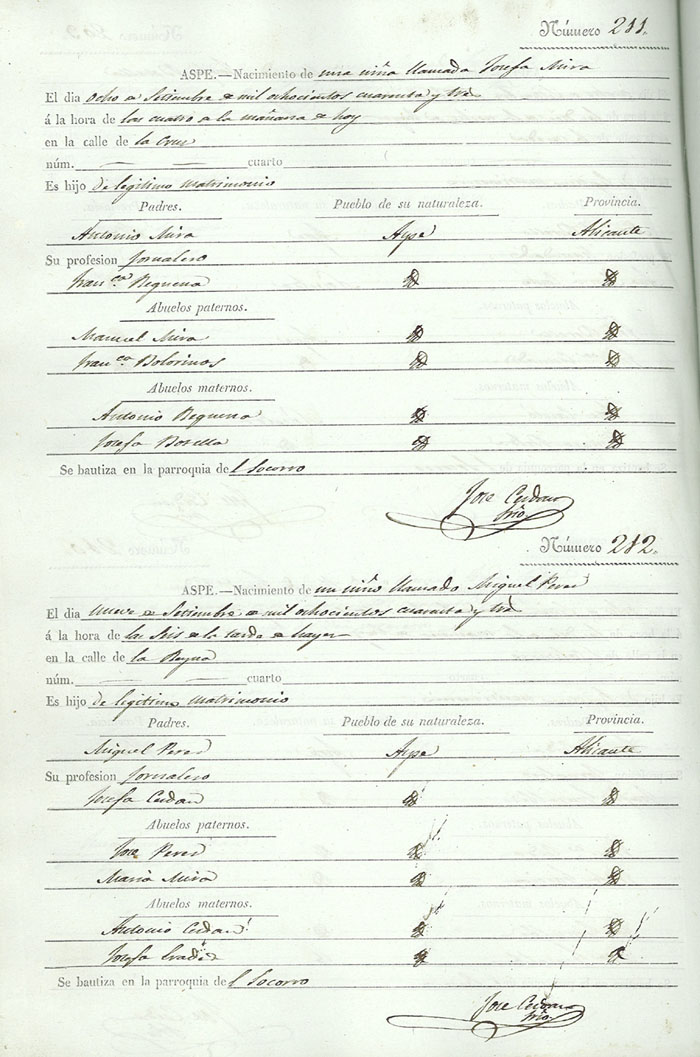 Número 211.
ASPE.—Nacimiento de una niña llamada Josefa Mira
El dia ocho de Setiembre de mil ochocientos cuarenta y tres
á la hora de las cuatro de la mañana de hoy
en la calle de la Cruz
núm. cuarto
Es hijo de legitimo matrimonio
Padres. Pueblo de su naturaleza. Provincia.
Antonio Mira Aspe Alicante
Su profesion Jornalero
Franca Requena
Abuelos paternos.
Manuel Mira
Franca Bolorinos
Abuelos maternos.
Antonio Requena
Josefa
Se bautiza en la parroquia del Socorro
Jose Cerdan
Srio
Número 212.
ASPE.—Nacimiento de un niño llamado Miguel Perez
El dia nueve de Setiembre de mil ochocientos cuarenta y tres
á la hora de las seis de la tarde de hayer
en la calle de la Reyna
núm. cuarto
Es hijo de legitimo matrimonio
Padres. Pueblo de su naturaleza. Provincia.
Miguel Perez Aspe Alicante
Su profesion Jornalero
Josefa Cerdan
Abuelos paternos.
Jose Perez
Maria Mira
Abuelos maternos.
Antonio Cerdan
Josefa
Se bautiza en la parroquia del Socorro
Jose Cerdan
Srio